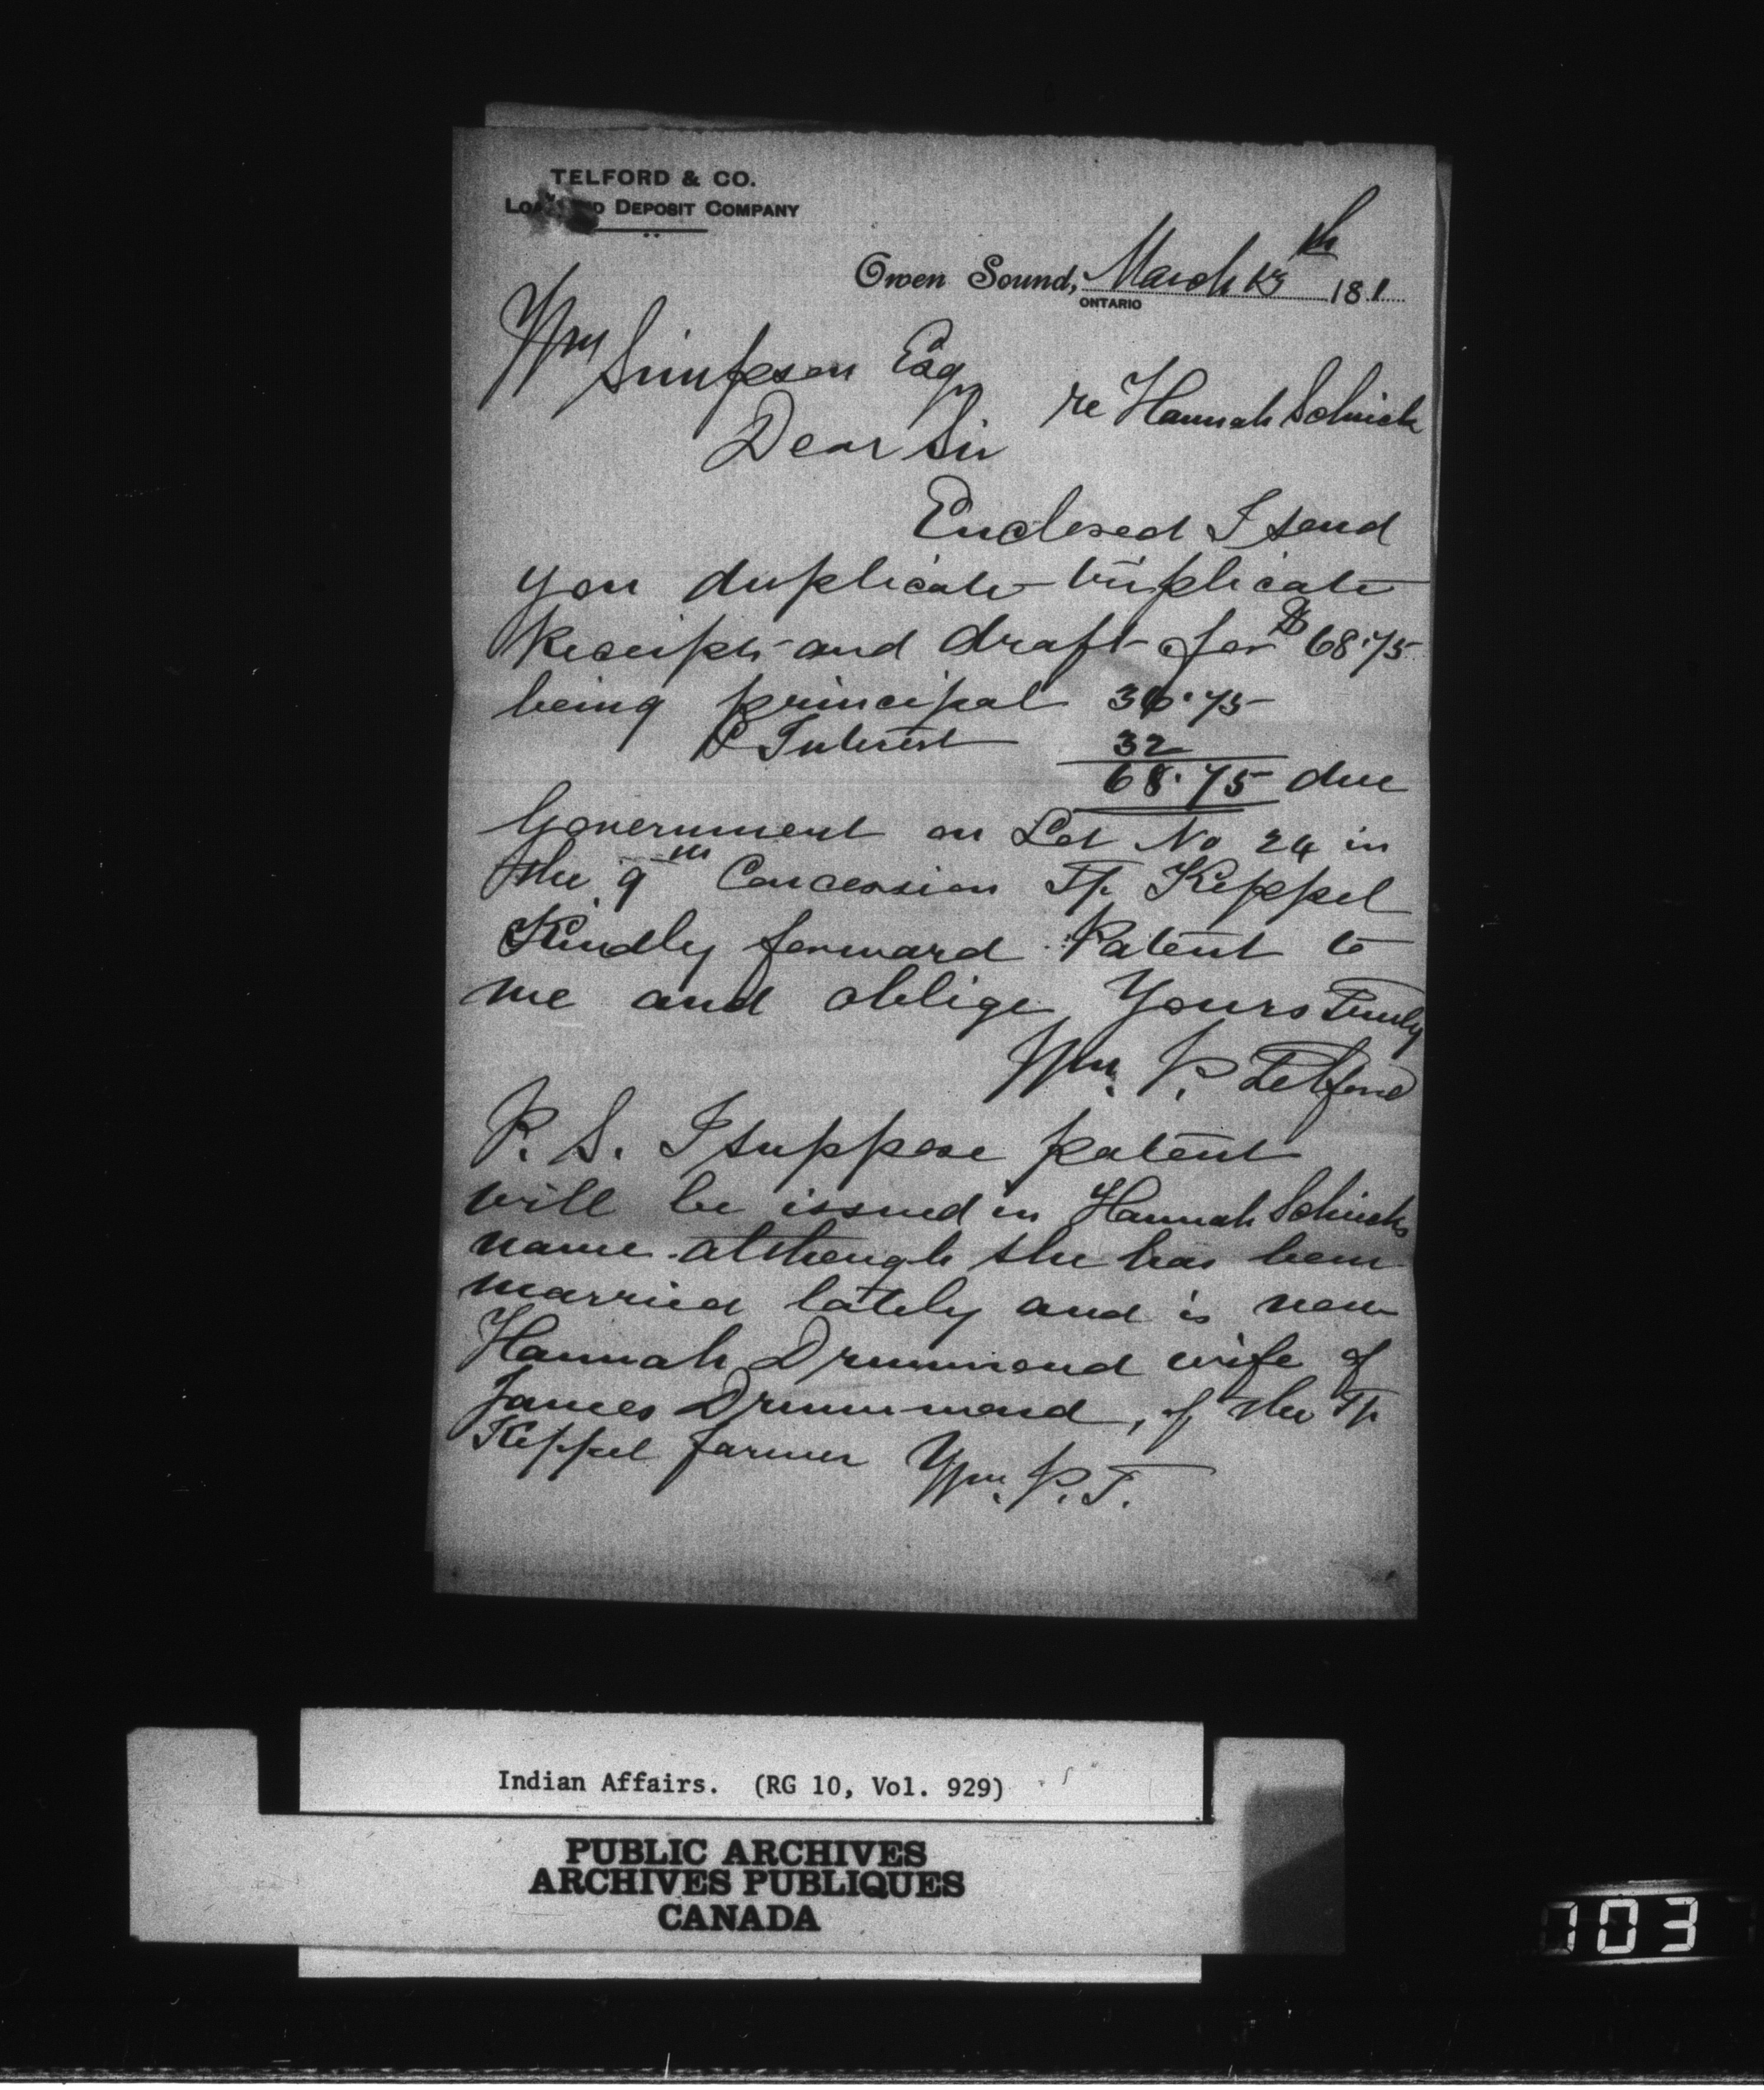 TELFORD & CO.
DEPOSIT COMPANY
Owen Sound, March 13th 181
ONTARIO
Wm Simpson Esq
re Hannah Schick
Dear Sir
Enclosed I send
you duplicate triplicate
Receipts and draft for $68.75
being principal 36.75
& Interest 32
68.75 due
Government on Lot No 24 in
the 9th Concession Tp Keppel
Kindly forward Patent to
me and oblige Yours Truly
Wm. P. Telford
P. S. I suppose patent
will be issued in Hannah Schicks
name although she has been
married lately and is now
Hannah Drummond wife of
James Drummond, of the Tp
Keppel farmer Wm. P. T.
Indian Affairs. (RG 10, Vol. 929)
PUBLIC ARCHIVES
ARCHIVES PUBLIQUES
CANADA
103